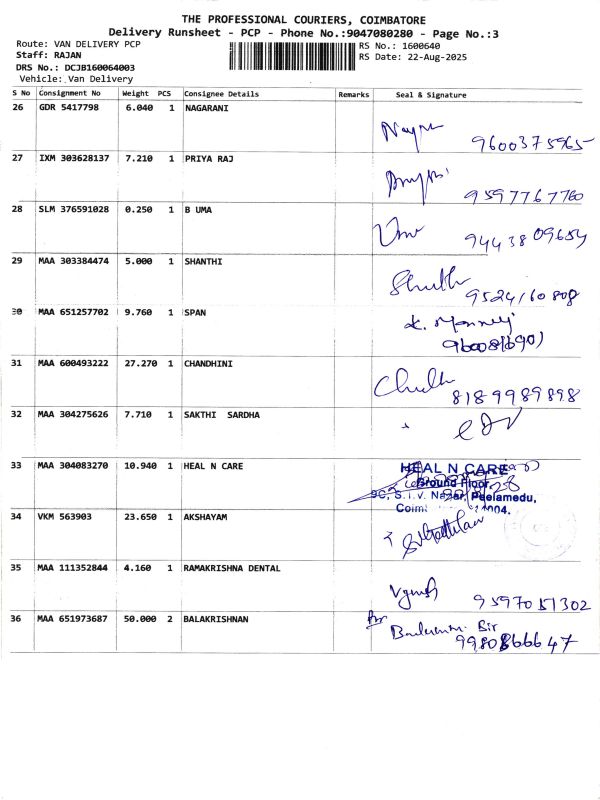 THE PROFESSIONAL COURIERS, COIMBATORE
Delivery Runsheet - PCP - Phone No.:9047080280 - Page No.:3
Route: VAN DELIVERY PCP RS No.: 1600640
Staff: RAJAN RS Date: 22-Aug-2025
DRS No.: DCJB160064003
Vehicle: Van Delivery
S No Consignment No Weight PCS Consignee Details Remarks Seal & Signature
26 GDR 5417798 6.040 1 NAGARANI
9600375965
27 IXM 303628137 7.210 1 PRIYA RAJ
9597767760
28 SLM 376591028 0.250 1 B UMA
Uma 9443809654
29 MAA 303384474 5.000 1 SHANTHI
9524160808
30 MAA 651257702 9.760 1 SPAN
31 MAA 600493222 27.270 1 CHANDHINI
8189989898
32 MAA 304275626 7.710 1 SAKTHI SARDHA
33 MAA 304083270 10.940 1 HEAL N CARE
HEAL N CARE
Ground Floor,
9C, S.I.V. Nagar, Peelamedu,
34 VKM 563903 23.650 1 AKSHAYAM
35 MAA 111352844 4.160 1 RAMAKRISHNA DENTAL
9597051302
36 MAA 651973687 50.000 2 BALAKRISHNAN